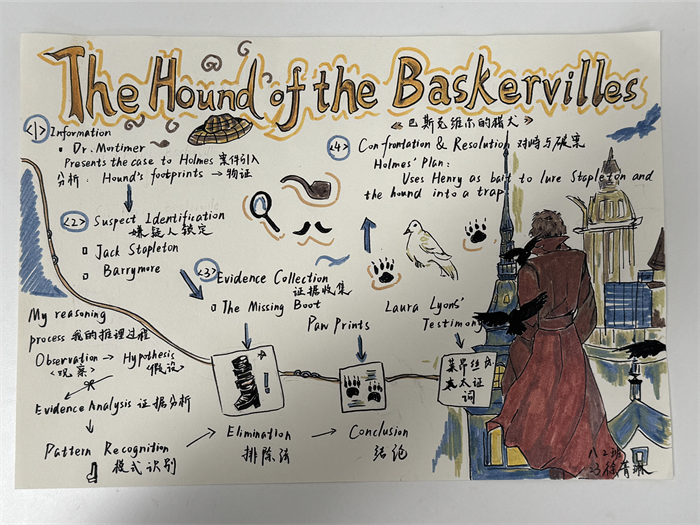 The Hound of the Baskervilles
《巴斯克维尔的猎犬》
<1> Information
Dr. Mortimer
Presents the case to Holmes 案件引入
分析: Hound's footprints → 物证
<2> Suspect Identification
嫌疑人锁定
Jack Stapleton
Barrymore
<3> Evidence Collection
证据收集
The Missing Boot
Paw Prints
Laura Lyons'
Testimony
莱昂丝
太太证
词
!
<4> Confrontation & Resolution 对峙与破案
Holmes' Plan:
Uses Henry as bait to lure Stapleton and
the hound into a trap
My reasoning
process 我的推理过程
Observation → Hypothesis
<观察> <假设>
Evidence Analysis 证据分析
Pattern Recognition → Elimination → Conclusion
模式识别 排除法 结论
八2班